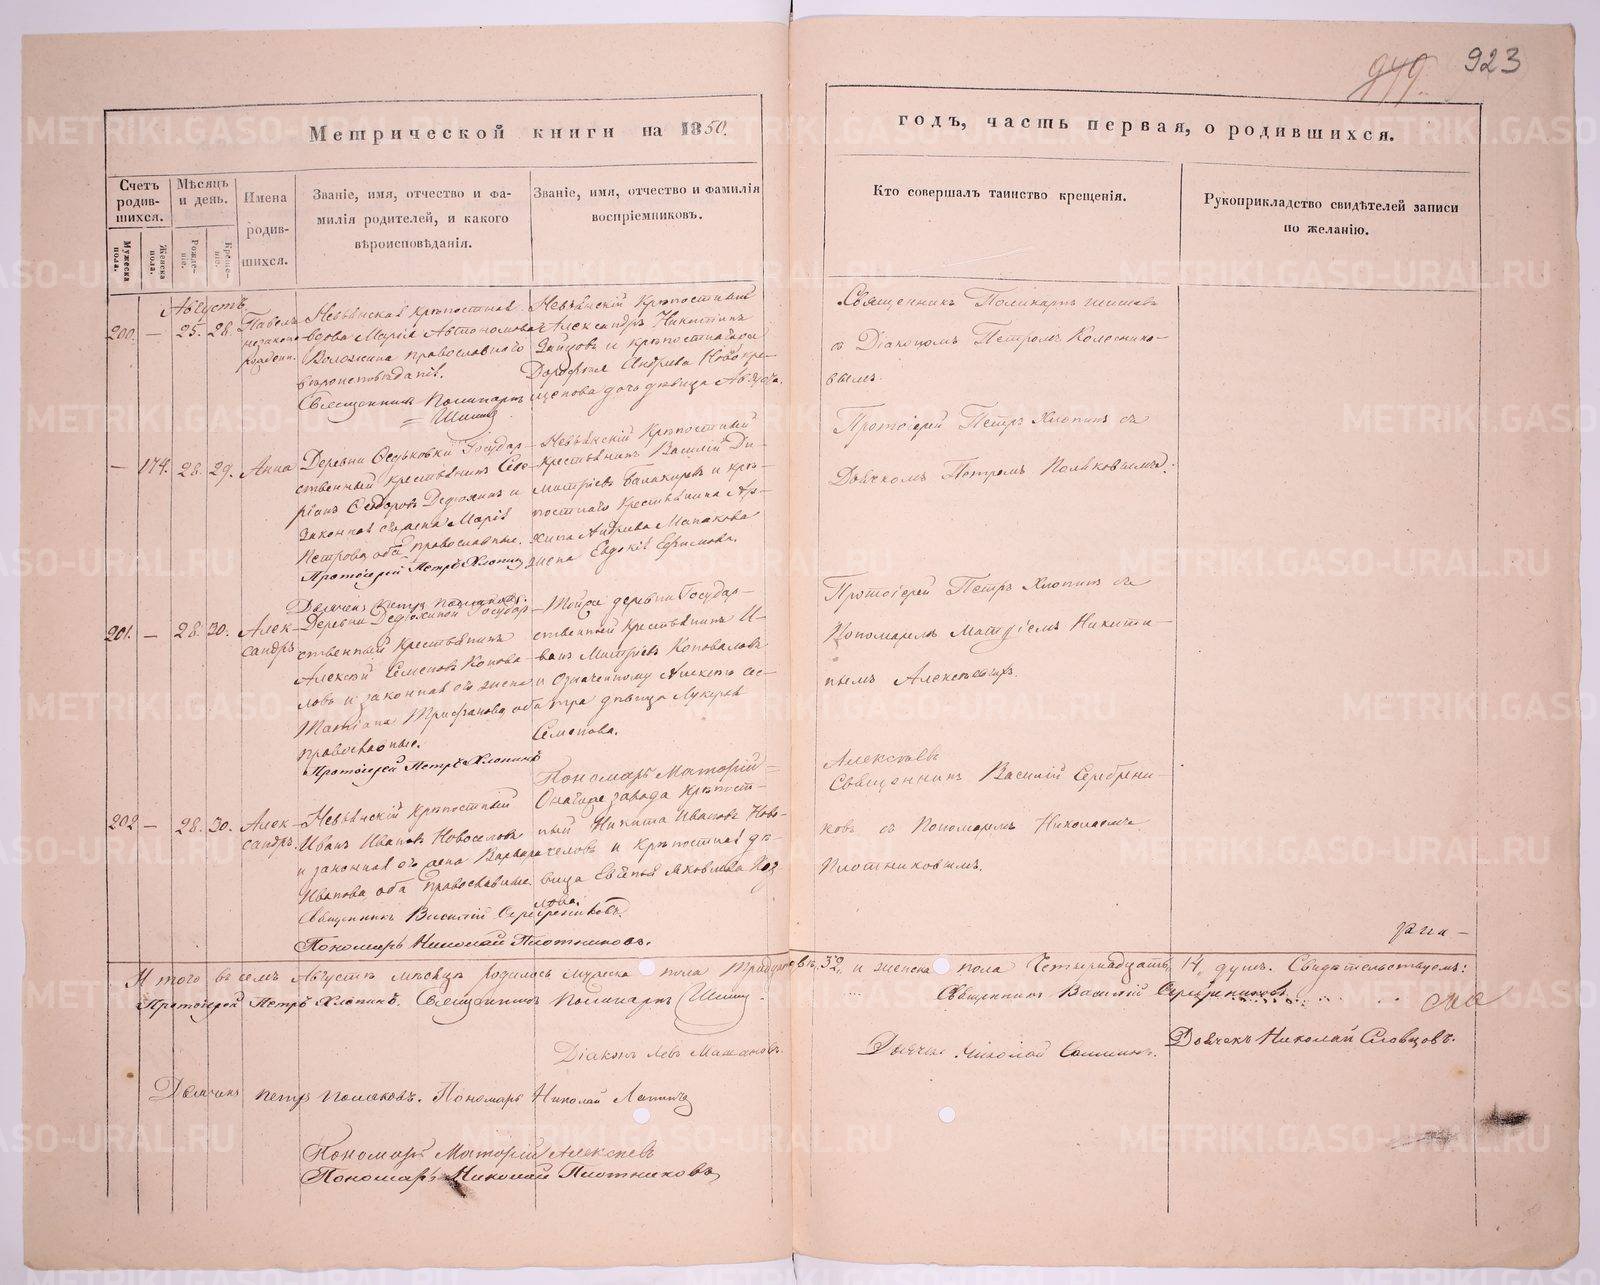 949. 923
Метрической книги на 1850.
годъ, часть первая, о родившихся.
Счетъ родив-шихся.
Мужеска пола.
Женска пола.
Мѣсяцъ и день.
Рожде-ніе.
Креще-ніе.
Имена родив-шихся.
Званіе, имя, отчество и фа-
милія родителей, и какого
вѣроисповѣданія.
Званіе, имя, отчество и фамилія
воспріемниковъ.
Кто совершалъ таинство крещенія.
Рукоприкладство свидѣтелей записи
по желанію.
Августъ
200. — 25. 28. Павелъ
незаконо
рожден.
Невьянская крѣпостная
Марія Автономова
Воложина православнаго
вѣроисповѣданія.
Священникъ Поликарпъ
Невьянскій Крѣпостный
Александръ Никитинъ
Зайцовъ и крѣпостная
Андрева Новокре-
щенова дочь дѣвица
Священникъ Поликарпъ
съ Діакономъ Петромъ Колоснико-
вымъ.
— 174. 28. 29. Анна
Деревни Федьковки Государ-
ственный крестьянинъ Севе-
ріанъ Сидоровъ Дедюхинъ и
законная его жена Марія
Петрова, оба православные.
Протоіерей Петръ Хлопинъ
Дьячекъ Петръ Поляковъ.
Невьянскій Крѣпостный
крестьянинъ Василій Ди-
митріевъ Балакиревъ и крѣ-
постнаго Крестьянина Ар-
хипа Андрева Мапакова
жена Евдокія Ефимова.
Протоіерей Петръ Хлопинъ съ
Дьячкомъ Петромъ Поляковымъ.
201. — 28. 30. Алек-
сандръ
Деревни Дедюхиной Государ-
ственный Крестьянинъ
Алексѣй Семеновъ Конова-
ловъ и законная его жена
Татіана Трифанова, оба
православные.
Протоіерей Петръ Хлопинъ
Тойже деревни Государ-
ственный Крестьянинъ И-
ванъ Митріевъ Коноваловъ
и означенному Алексѣю сес-
тра дѣвица Лукерья
Семенова.
Пономарь Матѳій
Алексѣевъ
Протоіерей Петръ Хлопинъ съ
Пономаремъ Матѳіемъ Никити-
нымъ Алексѣевымъ.
202 — 28. 30. Алек-
сандръ.
Невьянскій Крѣпостный
Иванъ Ивановъ Новоселовъ
и законная его жена Варвара
Иванова оба православные.
Священникъ Василій Серебрениковъ.
Пономарь Николай Плотниковъ.
Онагоже завода Крѣпост-
ный Никита Ивановъ Ново-
селовъ и Крѣпостная дѣ-
вица Евгенья Яковлева Коз
лова.
Священникъ Василій Серебрени-
ковъ съ Пономаремъ Николаемъ
Плотниковымъ.
Итого въ семъ Августѣ мѣсяцѣ родилось мужеска пола Тридцать два, 32, и женска пола Четырнадцать, 14, душъ. Свидѣтельствуемъ:
Протоіерей Петръ Хлопинъ. Священникъ Поликарпъ
Священникъ Василій Серебрениковъ
Діаконъ Левъ Мажановъ.
Дьячекъ Николай
Дьячекъ Николай Словцовъ.
Дьячекъ Петръ Поляковъ. Пономарь Николай Лапинъ
Пономарь Матѳій Алексѣевъ
Пономарь Николай Плотниковъ
METRIKI.GASO-URAL.RU